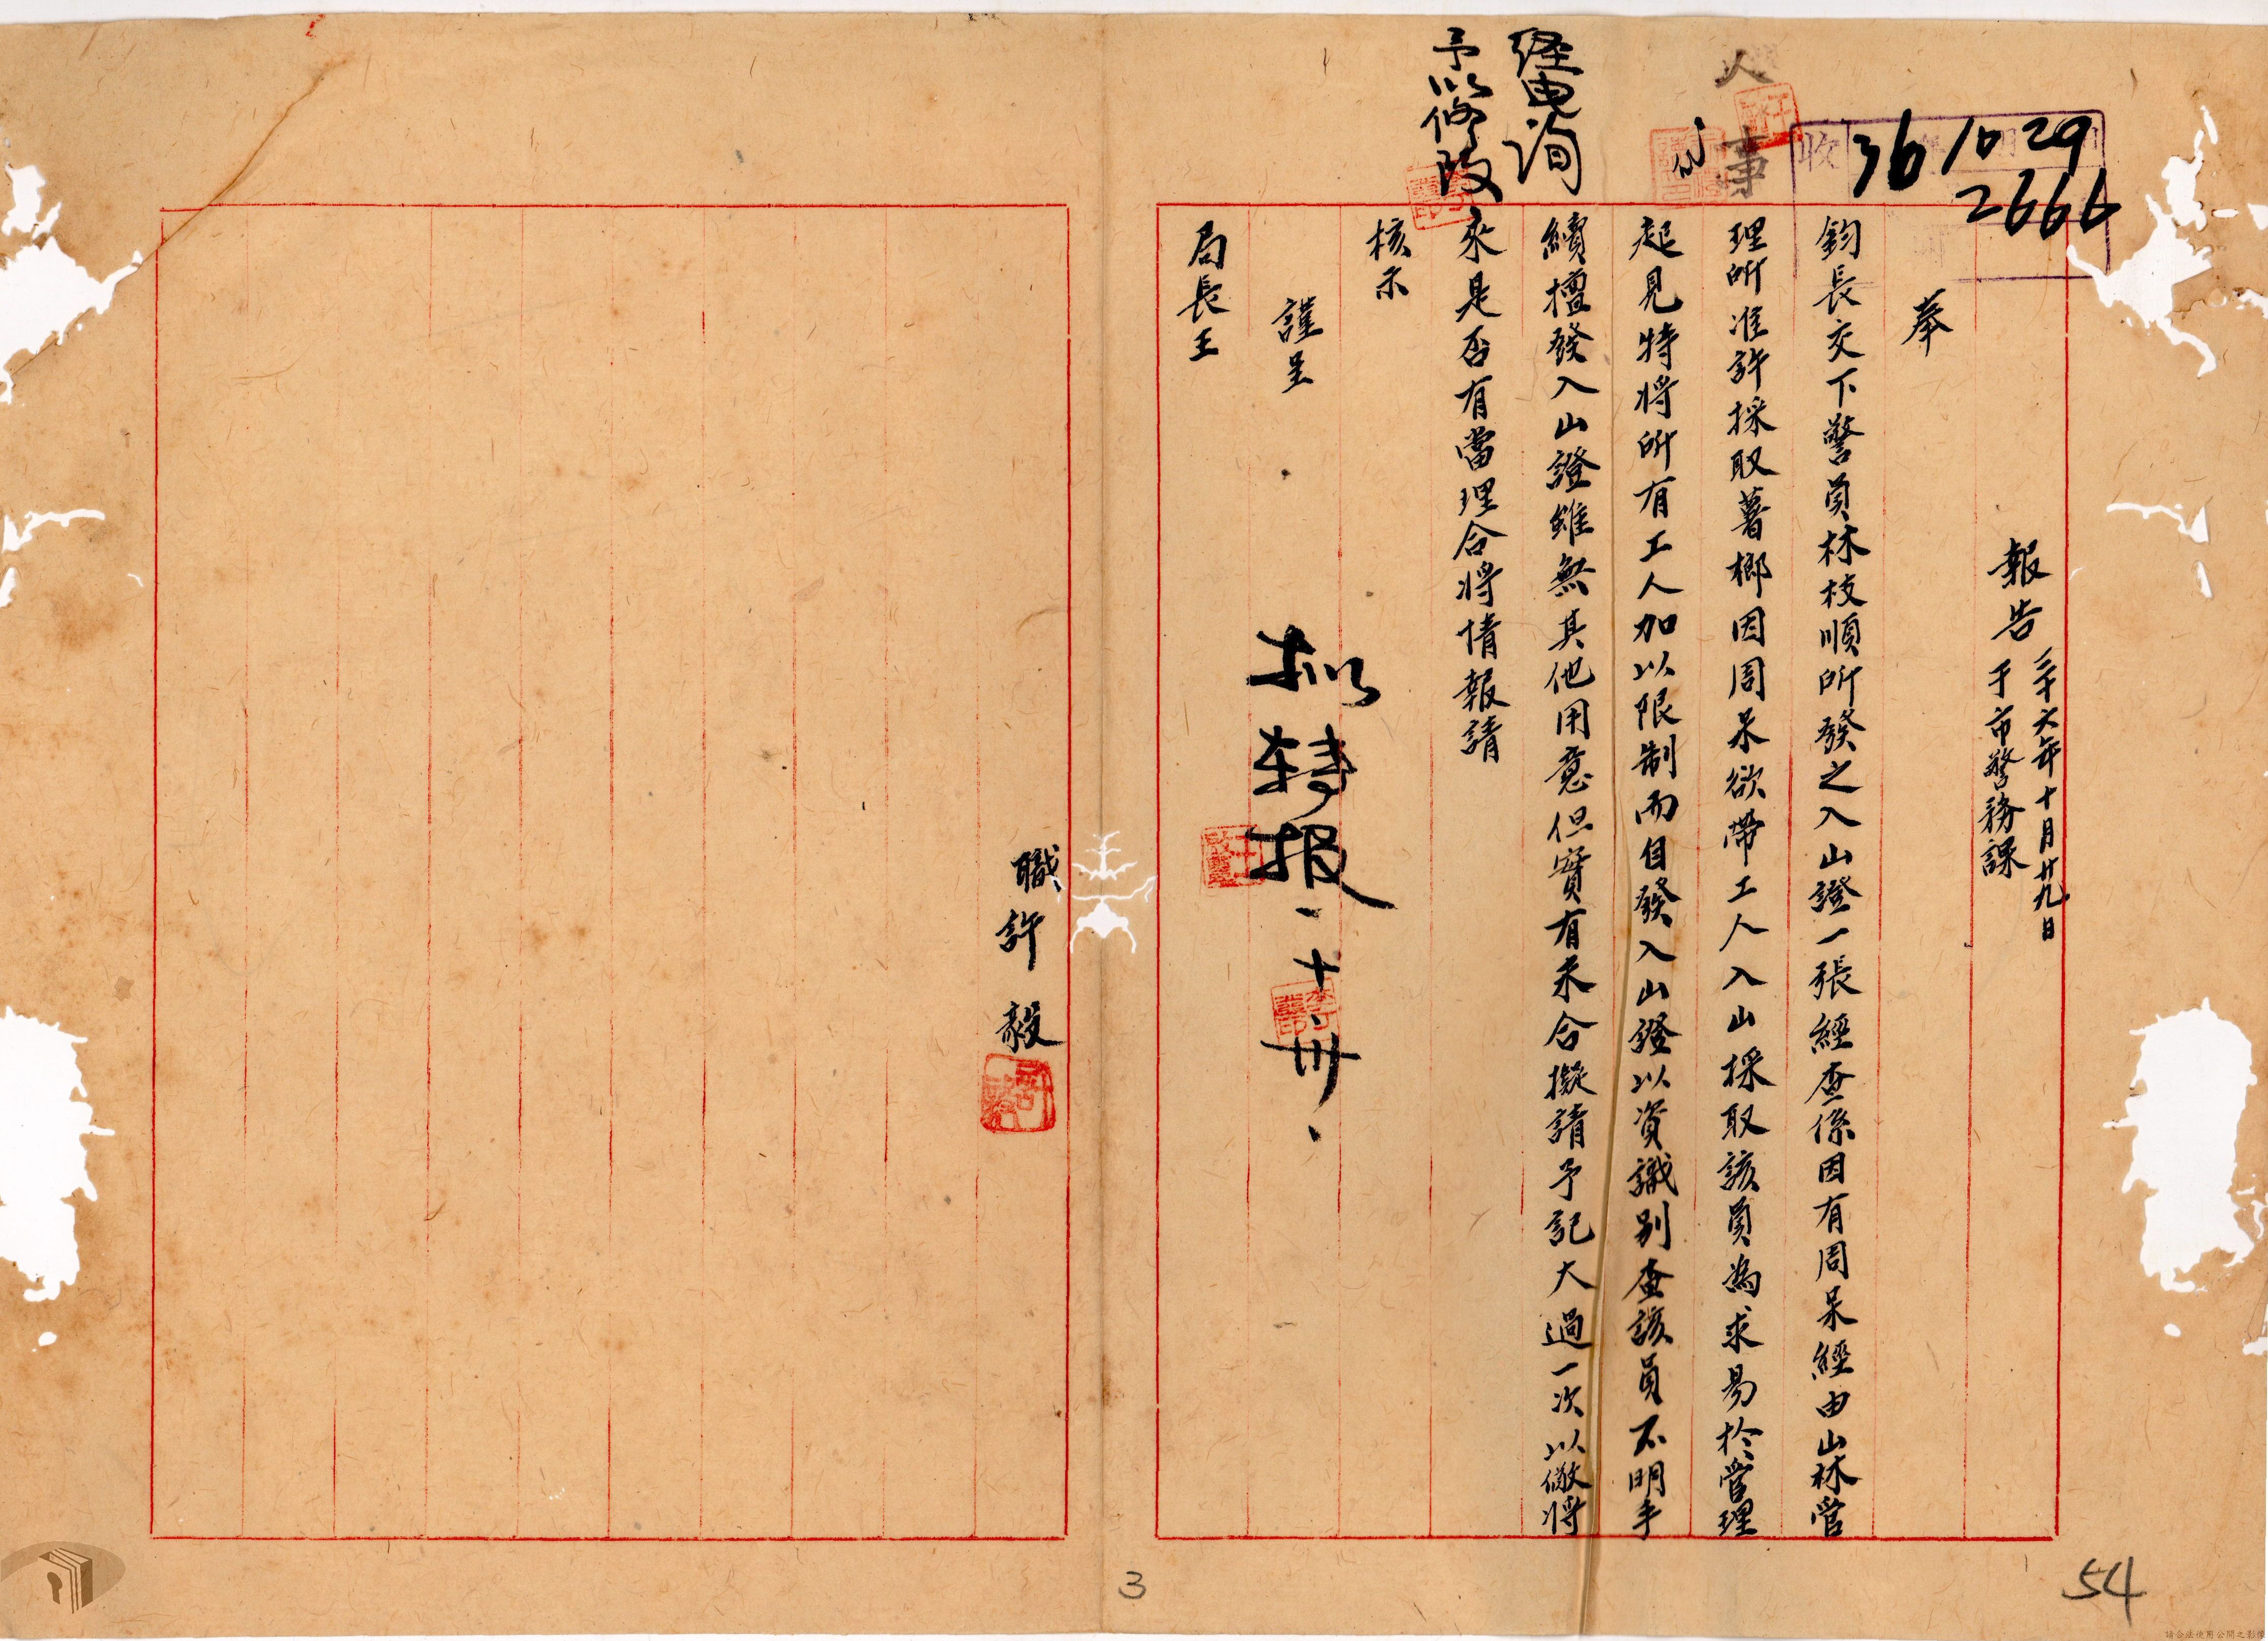 人事
收
36 10 29
2666
報告 三十六年十月廿九日
于市警務課
奉
鈞長交下警員林枝順所發之入山證一張經查係因有周呆經由山林管
理所准許採取薯榔因周呆欲帶工人入山採取該員為求易於管理
起見特將所有工人加以限制而自發入山證以資識別查該員不明手
續擅發入山證雖無其他用意但實有未合擬請予記大過一次以儆將
來是否有當理合將情報請
核示
謹呈
局長王
職許毅
經電詢
予以修改
拟轉报
十、卅、
3
54
請合法使用公開之影像